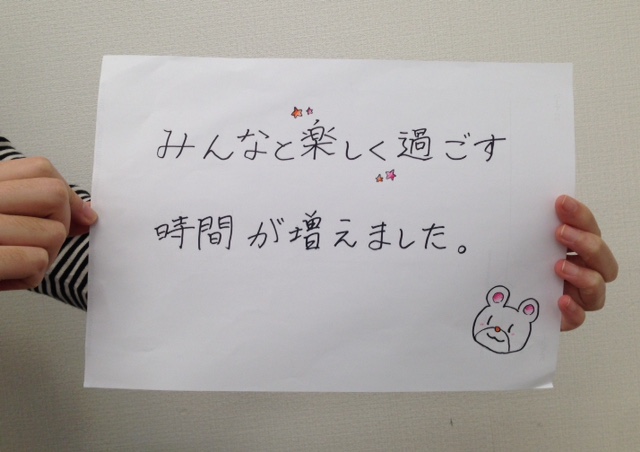 みんなと楽しく過ごす
時間が増えました。